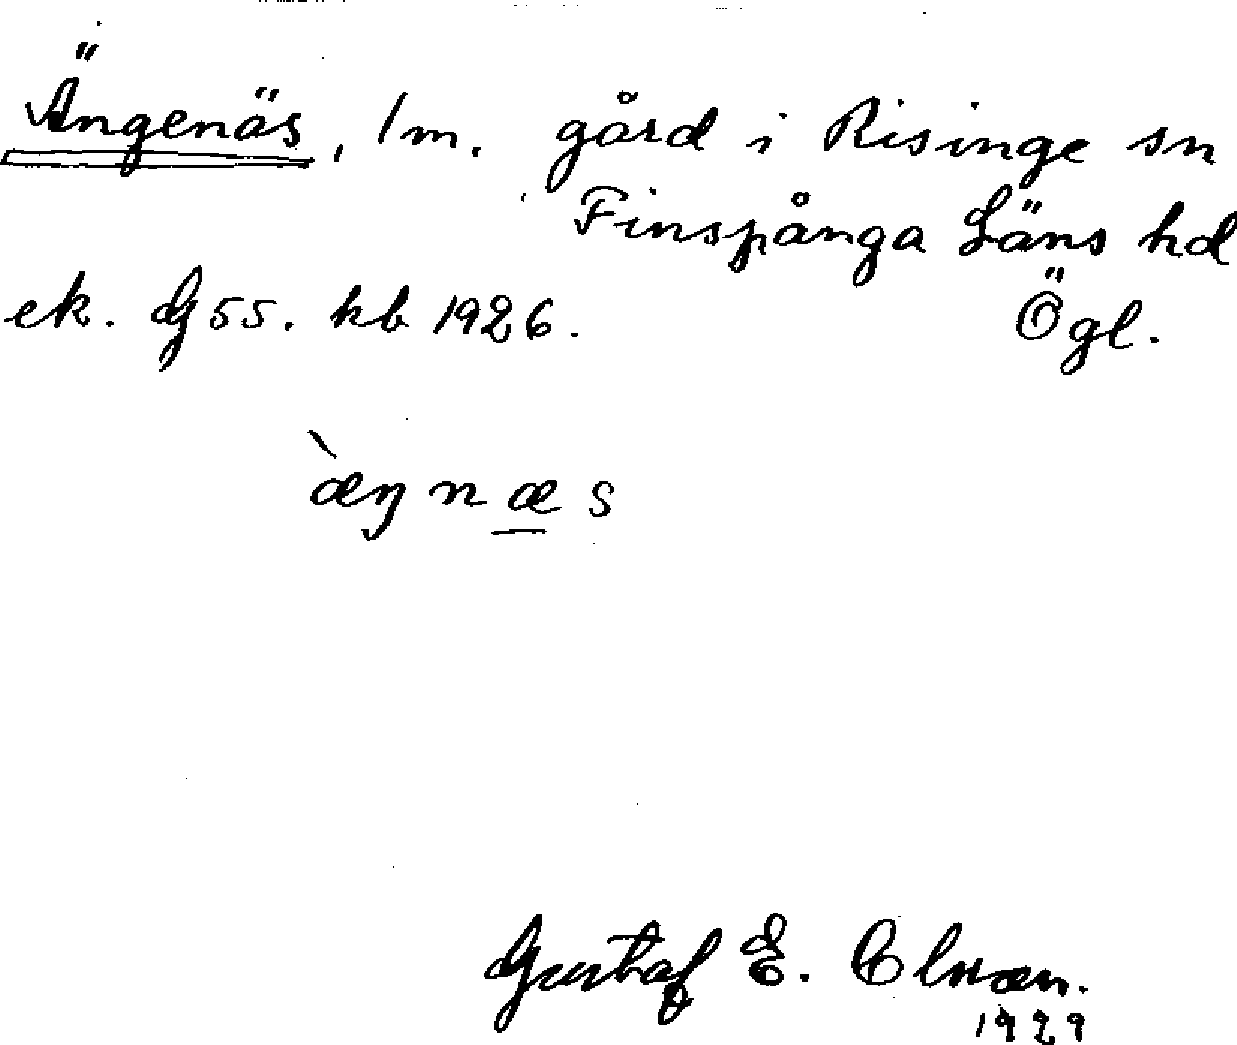 Ängenäs, 1 m. gård i Risinge sn
Finspånga Läns hd
ek. G 55. hb 1926. Ögl.
æ̀ŋnæ̲s
Gustaf E.
1929